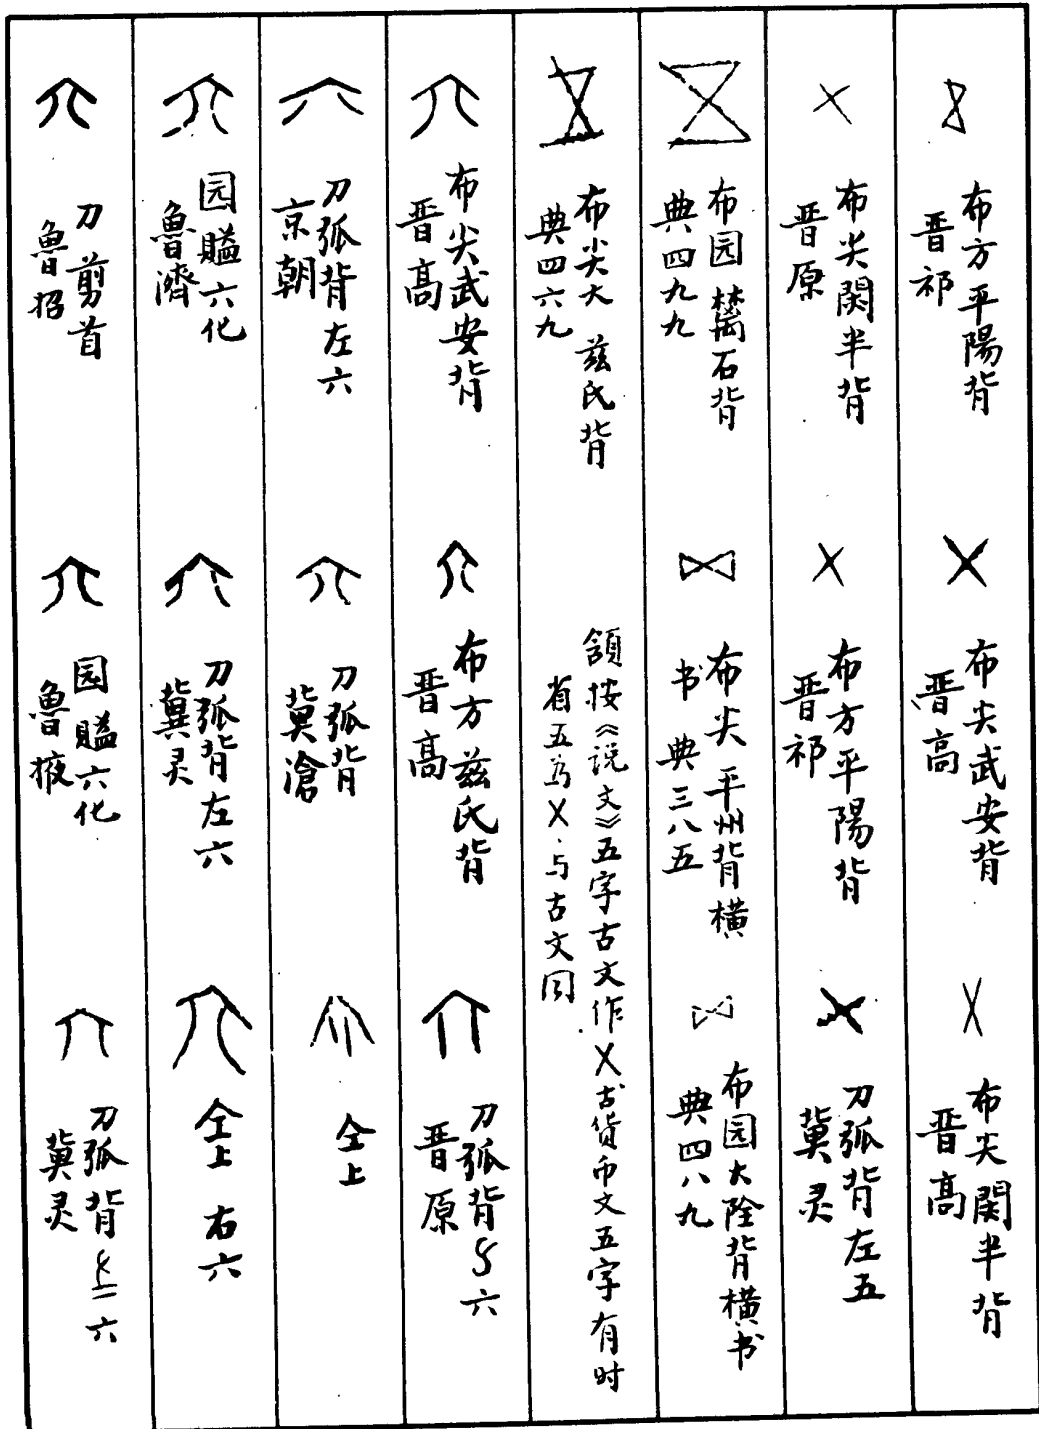 布方平陽背
晋祁
布尖武安背
晋高
布尖閔半背
晋高
布尖閔半背
晋原
布方平陽背
晋祁
刀弧背左五
冀灵
布园 石背
典四九九
布尖 平州背横
书 典三八五
布园大陰背横书
典四八九
布尖大 兹氏背
典四六九
頷按《说文》五字古文作乂古货币文五字有时
省五为乂.与古文同
布尖武安背
晋高
布方兹氏背
晋高
刀弧背 六
晋原
刀弧背左六
京朝
刀弧背
冀滄
仝上
园賹六化
魯濟
刀弧背左六
冀灵
仝上 右六
刀剪首
魯招
园賹六化
魯掖
刀弧背 六
冀灵